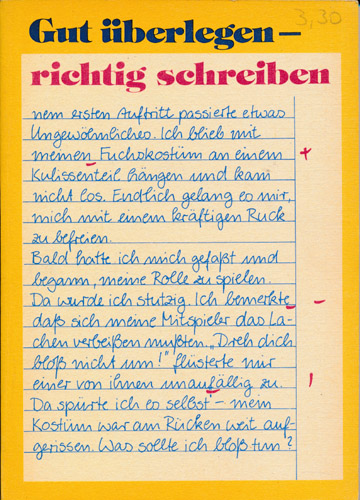 3,30
Gut überlegen –
richtig schreiben
nem ersten Auftritt passierte etwas
Ungewöhnliches. Ich blieb mit
meinen Fuchskostüm an einem +
Kulissenteil hängen und kam
nicht los. Endlich gelang es mir,
mich mit einem kräftigen Ruck
zu befreien.
Bald hatte ich mich gefaßt und
begann, meine Rolle zu spielen.
Da wurde ich stutzig. Ich bemerkte –
daß sich meine Mitspieler das La-
chen verbeißen mußten. „Dreh dich
bloß nicht um!" flüsterte mir
einer von ihnen unaufällig zu. ı
Da spürte ich es selbst – mein
Kostüm war am Rücken weit auf-
gerissen. Was sollte ich bloß tun?